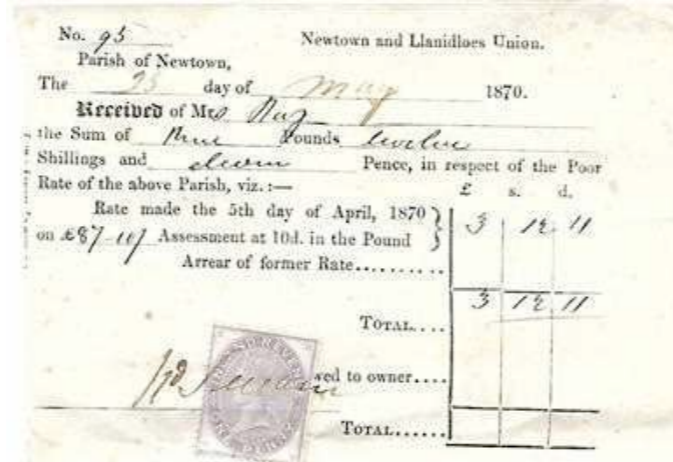 No. 95 Newtown and Llanidloes Union.
Parish of Newtown,
The 23 day of May 1870.
Received of Mrs
the Sum of Three Pounds twelve
Shillings and eleven Pence, in respect of the Poor
Rate of the above Parish, viz.:—
£ s. d.
Rate made the 5th day of April, 1870
on £87-10/ Assessment at 10d. in the Pound } 3 12 11
Arrear of former Rate..........
TOTAL.... 3 12 11
wed to owner....
TOTAL......